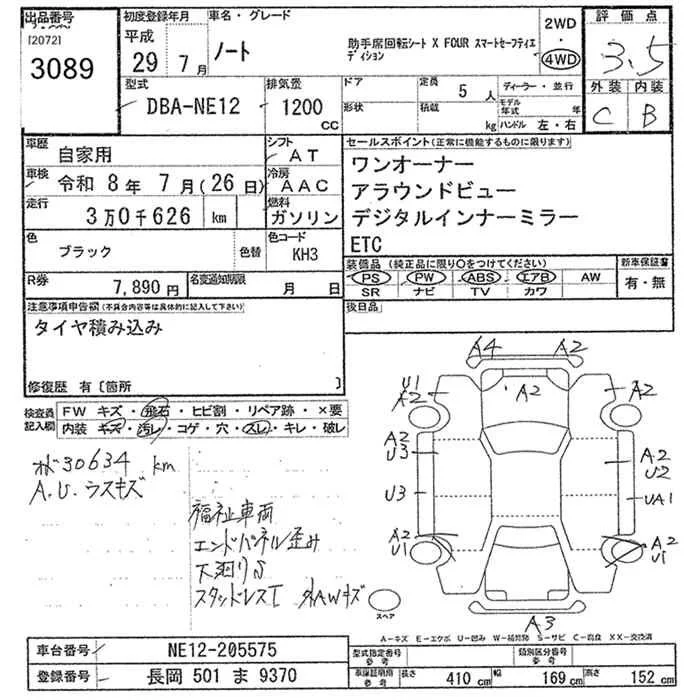 出品番号
[2072]
3089
初度登録年月
平成
29 7月
車名・グレード
ノート
助手席回転シート X FOUR スマートセーフティエディション
2WD
・
4WD
評価点
3.5
外装 内装
C B
型式
DBA-NE12
排気量
1200
CC
ドア
形状
定員
5 人
積載
kg
ディーラー・並行
モデル年式 年
ハンドル 左・右
車歴
自家用
シフト
AT
車検
令和 8年 7月(26日)
冷房
AAC
走行
3万0千626 km
燃料
ガソリン
色
ブラック
色替
色コード
KH3
R券
7,890円
名変通知期限
月 日
セールスポイント(正常に機能するものに限ります)
ワンオーナー
アラウンドビュー
デジタルインナーミラー
ETC
装備品(純正品に限り○をつけてください)
PS PW ABS エアB AW
SR ナビ TV カワ
新車保証書
有・無
注意事項申告欄(不具合内容等は具体的に記入して下さい)
タイヤ積み込み
修復歴 有〔箇所 〕
後日品
検査員記入欄
FW キズ・飛石・ヒビ割・リペア跡・×要
内装 キズ・汚レ・コゲ・穴・スレ・キレ・破レ
30634 km
A.U.ラスキズ
福祉車両
エンドパネル歪み
下廻りS
スタッドレスT 外AWキズ
スペア
A4 A2
U1
A2
A2
A2
A2
U3
A2
U2
U3
UA1
A2
U1
A2
U1
A3
A-キズ E-エクボ U-凹み W-補修跡 S-サビ C-腐食 XX-交換済
車台番号
NE12-205575
登録番号
長岡 501 ま 9370
型式指定番号
参考
類別区分番号
参考
車庫証明用
参考
長さ 410 cm
幅 169 cm
高さ 152 cm